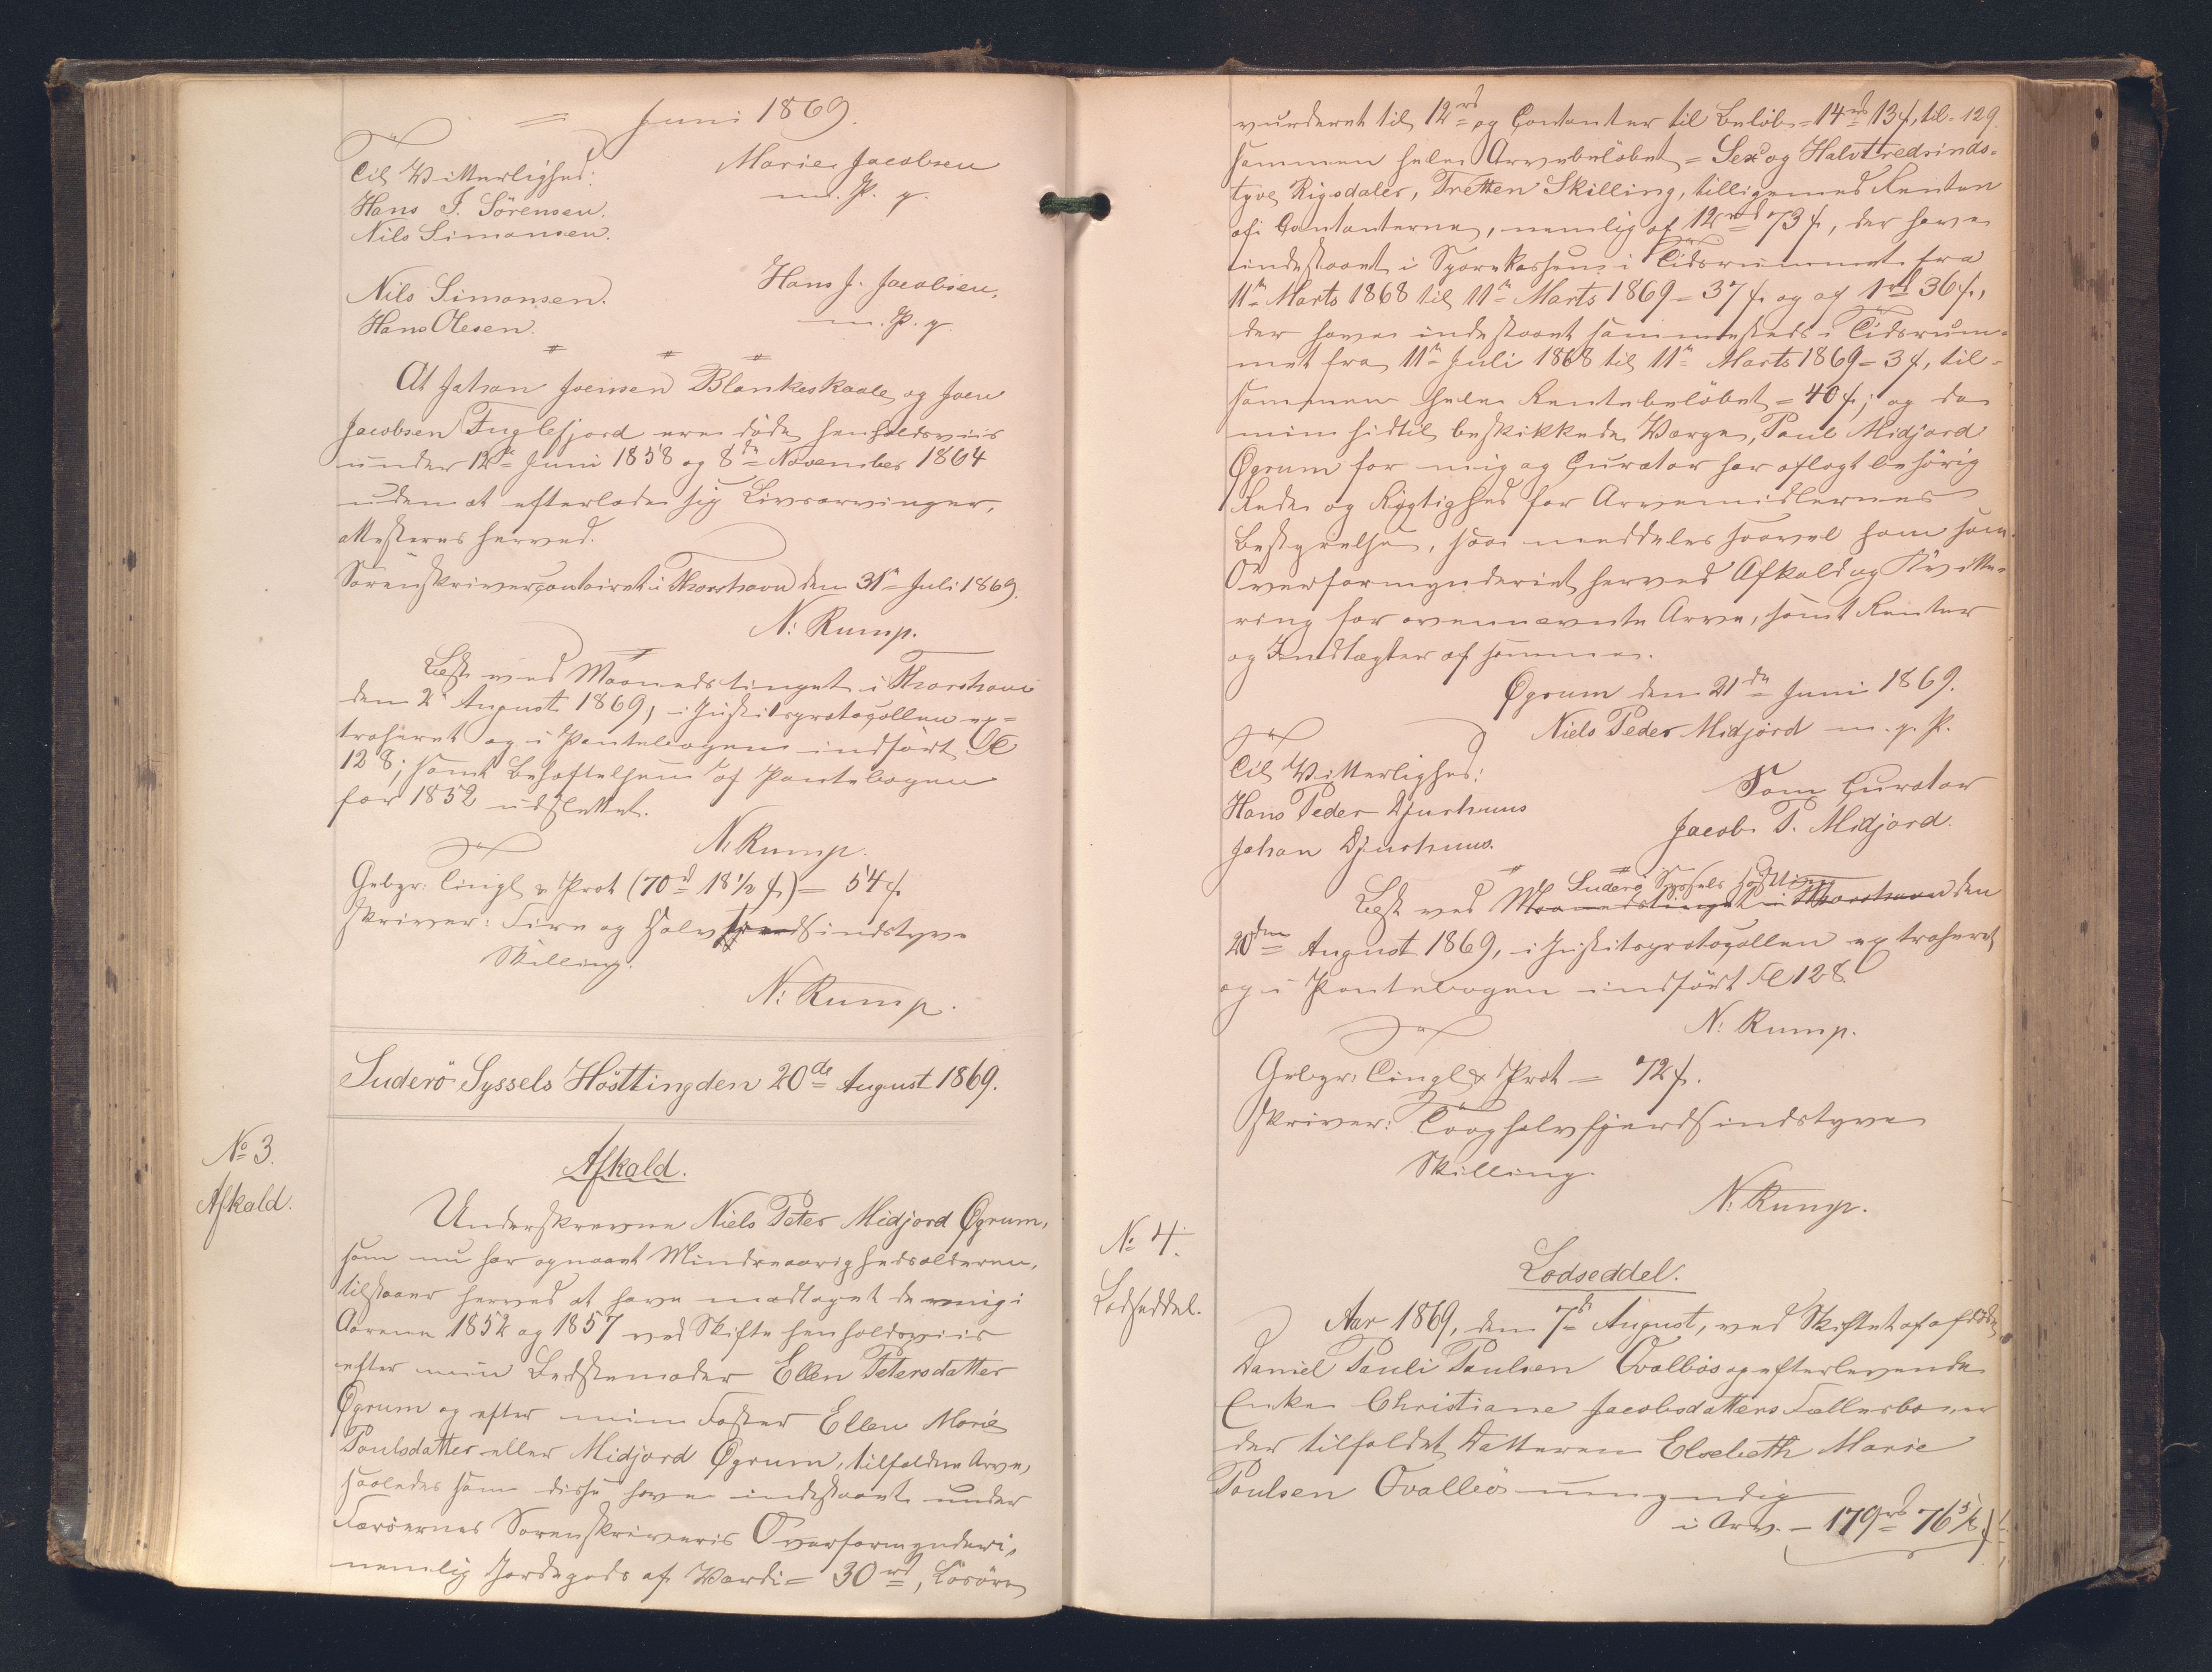 = Juni 1869.
Til Vitterlighed: Marie Jacobsen
Hans J. Sörensen. m. P. g.
Nils Simonsen.
Nils Simonsen. Hans J. Jacobsen,
Hans Olesen. m. P. g.
At Johan Joensen Blankeskaale og Joen
Jacobsen Fuglefjord ere døde henholdsviis
under 12te Juni 1858 og 8de November 1864
uden at efterlade sig Livsarvinger,
attesteres herved.
Sorenskrivercontoiret i Thorshavn den 31te Juli 1869.
N: Rump.
Læst ved Maanedstinget i Thorshavn
den 2 August 1869, i Justitsprotocollen ex-
traheret og i Pantebogen indført Fol
128; samt Behæftelsen af Pantebogen
for 1852 udslettet.
N. Rump.
Gebyr: Tingl & Prot (70rd 18 1/2 ſ) = 54 ſ.
skriver: Fire og Halvtredsindstyve
Skilling.
N: Rump.
Suderö Syssels Höstting den 20de August 1869.
No 3.
Afkald.
Afkald.
Underskrevne Niels Peter Midjord Øgrum,
som nu har opnaaet Mindreaarighedsalderen,
tilstaaer herved at have modtaget de mig i
Aarene 1852 og 1857 ved Skifte henholdsviis
efter min Bedstemoder Ellen Petersdatter
Øgrum og efter min Faster Ellen Marie
Poulsdatter eller Midjord Øgrum, tilfaldne Arve,
saaledes som disse have indestaaet under
Færöernes Sorenskriveris Overformynderi,
nemlig Jordegods af Værdi = 30rd, Lösöre
vurderet til 12rd og Contanter til Beløb = 14rd 13 ſ, til- 129.
sammen hele Arvebeløbet = Sex og Halvtredsinds-
tyve Rigsdaler, Tretten Skilling, tilligemed Renten
af Contanterne, nemlig af 12rd 73 ſ, der have
indestaaet i Sparekassen i Tidsrummet fra
11te Marts 1868 til 11te Marts 1869 = 37 ſ. og af 1rd 36 ſ.,
der have indestaaet sammesteds i Tidsrum-
met fra 11te Juli 1868 til 11te Marts 1869 = 3 ſ, til-
sammen hele Rentebeløbet = 40 ſ; og da
min hidtil beskikkede Værge, Poul Midjord
Øgrum for mig og Curator har aflagt behörig
Rede og Rigtighed for Arvemidlernes
Bestyrelse, saa meddeles saavel ham som
Overformynderiet herved Afkald og Kvitte-
ring for ovennævnte Arve, samt Renter
og Indtægter af samme.
Øgrum den 21de Juni 1869.
Niels Peder Midjord m. p. P.
Til Vitterlighed: Som Curator
Hans Peder Djurhuus Jacob P. Midjord.
Johan Djurhuus.
Suderö Syssels Høstting
Læst ved Maanedstinget i Thorshavn den
20de August 1869, i Justitsprotocollen extraheret
og i Pantebogen indført Fol 128.
N: Rump.
Gebyr: Tingl & Prot = 72 ſ.
skriver: To og halvfjerdsindstyve
Skilling.
N. Rump.
No 4.
Lodseddel.
Lodseddel.
Aar 1869, den 7de August, ved Skiftet af afdøde
Daniel Pauli Poulsen Qvalbös og efterlevende
Enke Christiane Jacobsdatters Fællesbo, er
der tilfaldet Datteren Elsebeth Marie
Poulsen Qvalbö umyndig
i Arv. = 179rd 76 5/6 ſ